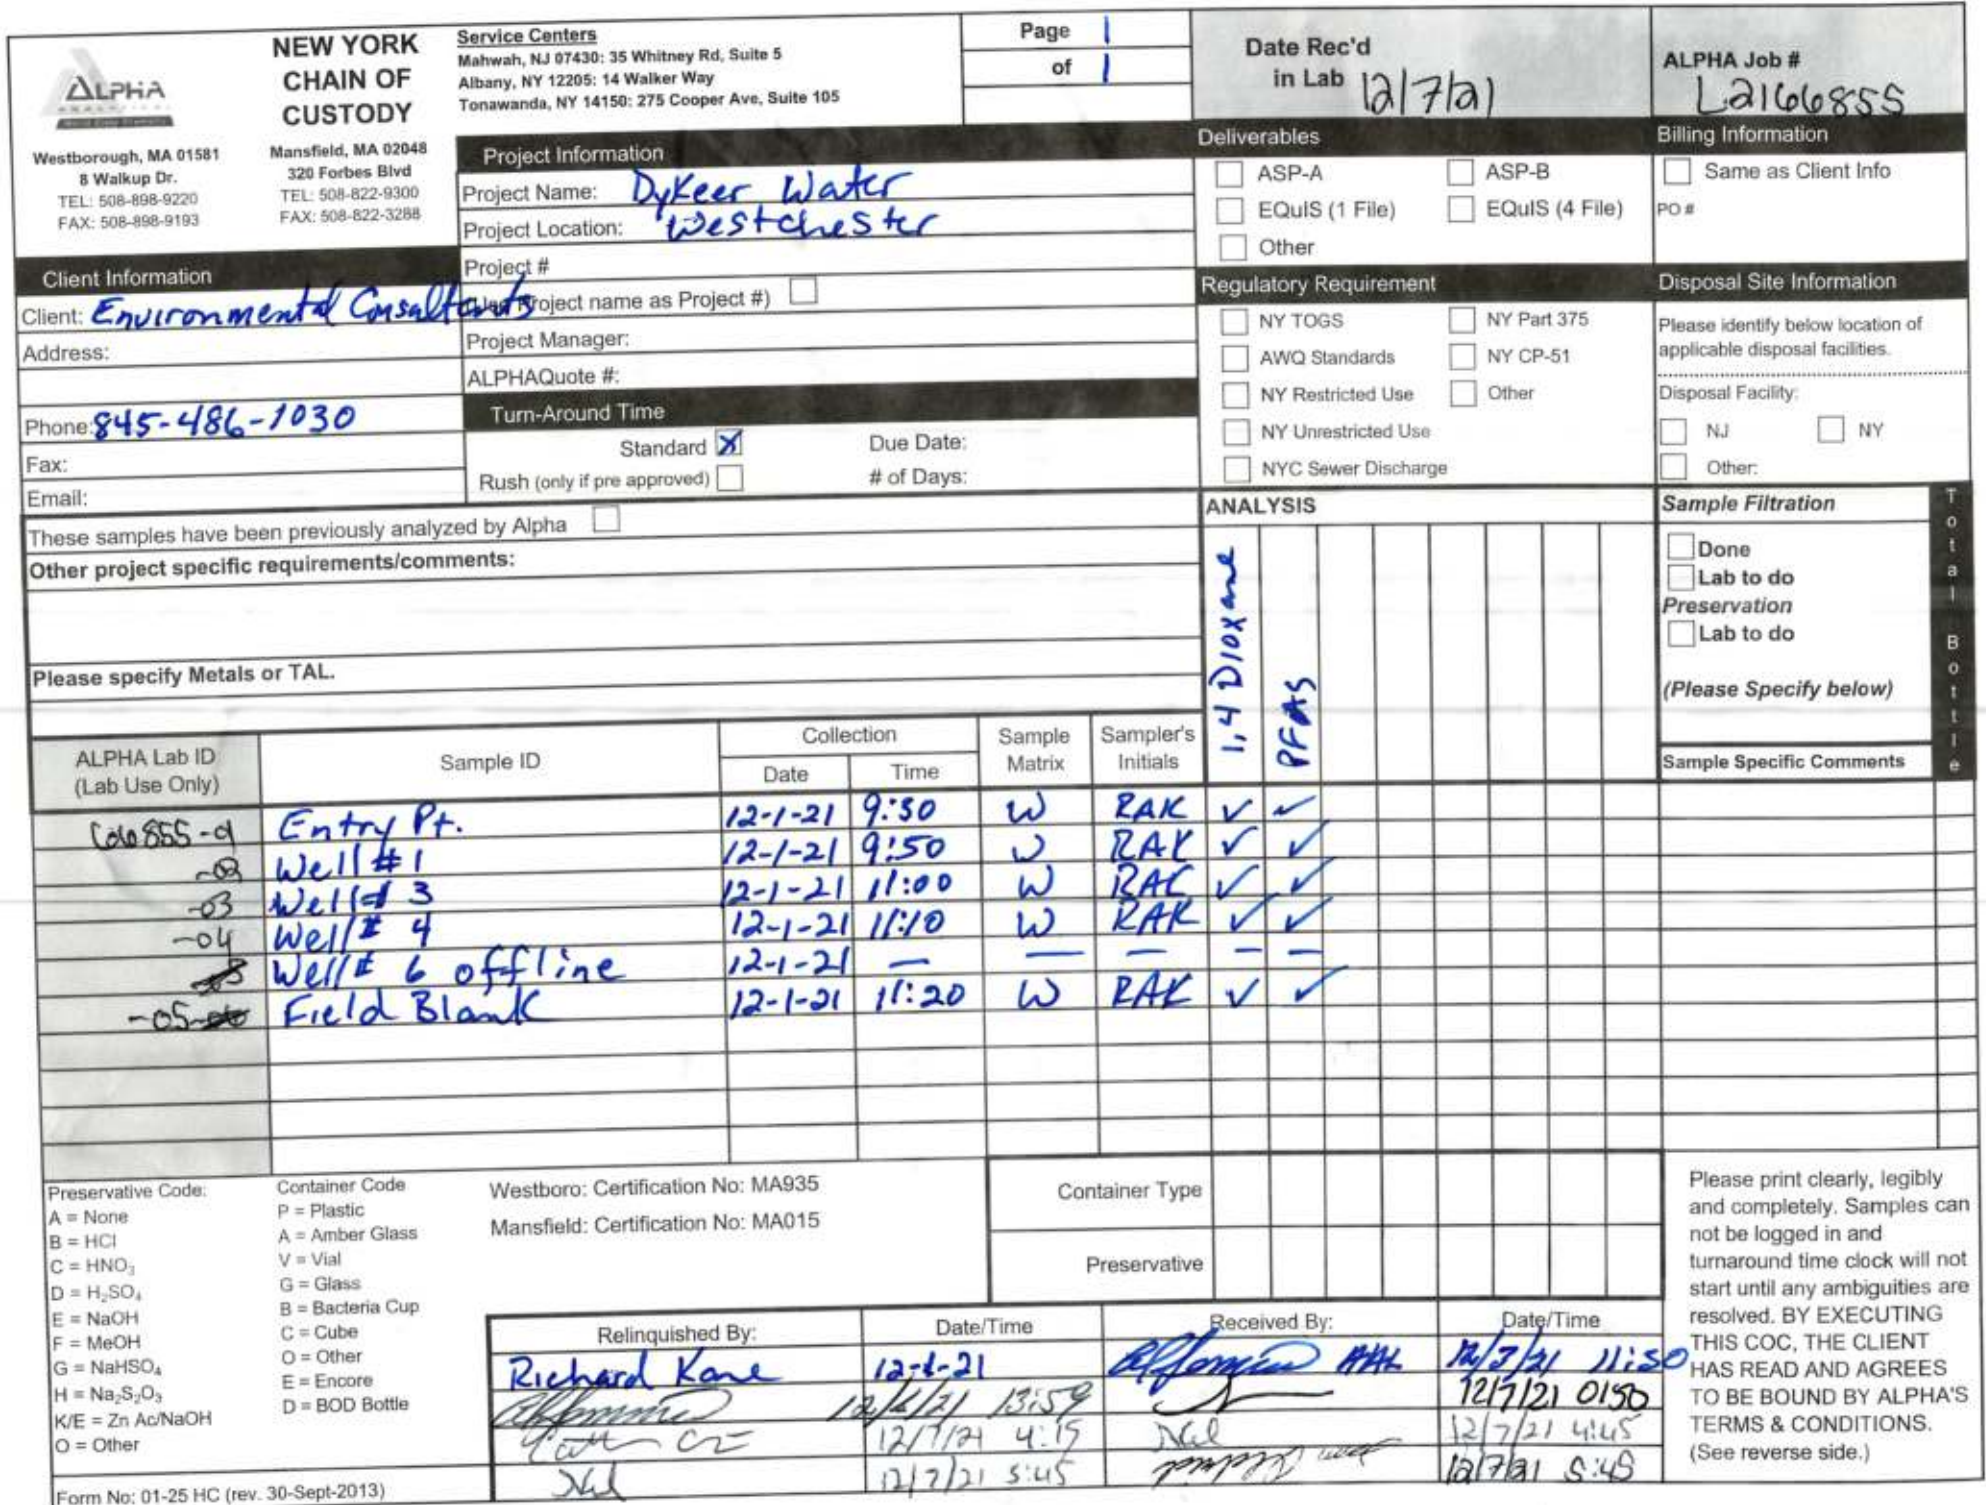 ALPHA
NEW YORK
CHAIN OF
CUSTODY
Service Centers
Mahwah, NJ 07430: 35 Whitney Rd, Suite 5
Albany, NY 12205: 14 Walker Way
Tonawanda, NY 14150: 275 Cooper Ave, Suite 105
Page 1
of 1
Date Rec'd
in Lab 12/7/21
ALPHA Job #
L2166855
Westborough, MA 01581
8 Walkup Dr.
TEL: 508-898-9220
FAX: 508-898-9193
Mansfield, MA 02048
320 Forbes Blvd
TEL: 508-822-9300
FAX: 508-822-3288
Project Information
Project Name: Dykeer Water
Project Location: Westchester
Project #
(Use Project name as Project #)
Project Manager:
ALPHAQuote #:
Turn-Around Time
Standard X
Due Date:
Rush (only if pre approved)
# of Days:
Deliverables
ASP-A
ASP-B
EQuIS (1 File)
EQuIS (4 File)
Other
Billing Information
Same as Client Info
PO #
Client Information
Client: Environmental Consultants
Address:
Phone: 845-486-1030
Fax:
Email:
Regulatory Requirement
NY TOGS
NY Part 375
AWQ Standards
NY CP-51
NY Restricted Use
Other
NY Unrestricted Use
NYC Sewer Discharge
Disposal Site Information
Please identify below location of
applicable disposal facilities.
Disposal Facility:
NJ
NY
Other:
These samples have been previously analyzed by Alpha
Other project specific requirements/comments:
Please specify Metals or TAL.
ANALYSIS
1,4 Dioxane
PFAS
Sample Filtration
Done
Lab to do
Preservation
Lab to do
(Please Specify below)
Sample Specific Comments
Total Bottle
ALPHA Lab ID
(Lab Use Only)
Sample ID
Collection
Date
Time
Sample
Matrix
Sampler's
Initials
Entry Pt. 12-1-21 9:30 W RAK ✓ ✓
-02 Well #1 12-1-21 9:50 W RAK ✓ ✓
-03 Well# 3 12-1-21 11:00 W RAK ✓ ✓
-04 Well# 4 12-1-21 11:10 W RAK ✓ ✓
Well# 6 offline 12-1-21 — — — — —
-05 Field Blank 12-1-21 11:20 W RAK ✓ ✓
Preservative Code:
A = None
B = HCl
C = HNO₃
D = H₂SO₄
E = NaOH
F = MeOH
G = NaHSO₄
H = Na₂S₂O₃
K/E = Zn Ac/NaOH
O = Other
Container Code
P = Plastic
A = Amber Glass
V = Vial
G = Glass
B = Bacteria Cup
C = Cube
O = Other
E = Encore
D = BOD Bottle
Westboro: Certification No: MA935
Mansfield: Certification No: MA015
Container Type
Preservative
Relinquished By:
Date/Time
Received By:
Date/Time
Richard Kane 12-1-21 AAL 12/3/21 11:50
13:59 12/7/21 0150
12/7/21 4:15 12/7/21 4:45
12/7/21 5:45 12/7/21 5:45
Please print clearly, legibly
and completely. Samples can
not be logged in and
turnaround time clock will not
start until any ambiguities are
resolved. BY EXECUTING
THIS COC, THE CLIENT
HAS READ AND AGREES
TO BE BOUND BY ALPHA'S
TERMS & CONDITIONS.
(See reverse side.)
Form No: 01-25 HC (rev. 30-Sept-2013)